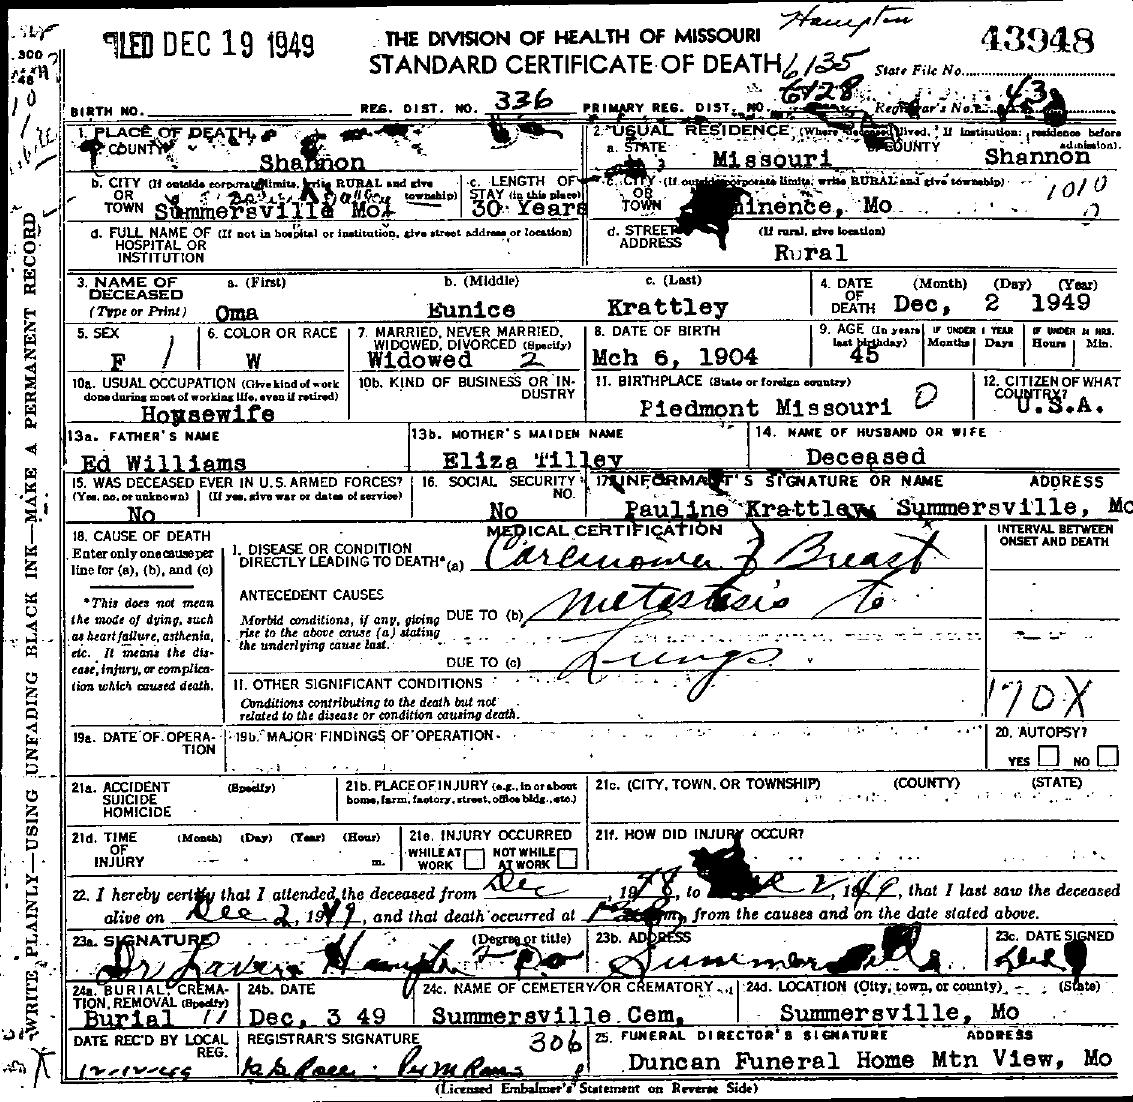 Hampton
FILED DEC 19 1949
THE DIVISION OF HEALTH OF MISSOURI
43948
STANDARD CERTIFICATE OF DEATH
6135
State File No.
BIRTH NO.
REG. DIST. NO. 336
PRIMARY REG. DIST. NO. 6128
Registrar's No. 43
1. PLACE OF DEATH
a. COUNTY Shannon
2. USUAL RESIDENCE (Where deceased lived. If institution: residence before admission).
a. STATE Missouri
b. COUNTY Shannon
b. CITY (If outside corporate limits, write RURAL and give township)
OR
TOWN Summersville Mo.
c. LENGTH OF
STAY (in this place)
30 Years
c. CITY (If outside corporate limits, write RURAL and give township)
OR
TOWN inence, Mo
1010
0
d. FULL NAME OF (If not in hospital or institution, give street address or location)
HOSPITAL OR
INSTITUTION
d. STREET
ADDRESS
(If rural, give location)
Rural
3. NAME OF
DECEASED
(Type or Print)
a. (First)
Oma
b. (Middle)
Eunice
c. (Last)
Krattley
4. DATE
OF
DEATH
(Month) (Day) (Year)
Dec, 2 1949
5. SEX
F 1
6. COLOR OR RACE
W
7. MARRIED, NEVER MARRIED,
WIDOWED, DIVORCED (Specify)
Widowed 2
8. DATE OF BIRTH
Mch 6, 1904
9. AGE (In years last birthday)
45
IF UNDER 1 YEAR
Months Days
IF UNDER 24 HRS.
Hours Min.
10a. USUAL OCCUPATION (Give kind of work
done during most of working life, even if retired)
Housewife
10b. KIND OF BUSINESS OR IN-
DUSTRY
11. BIRTHPLACE (State or foreign country)
Piedmont Missouri 0
12. CITIZEN OF WHAT
COUNTRY?
U.S.A.
13a. FATHER'S NAME
Ed Williams
13b. MOTHER'S MAIDEN NAME
Eliza Tilley
14. NAME OF HUSBAND OR WIFE
Deceased
15. WAS DECEASED EVER IN U.S. ARMED FORCES?
(Yes, no, or unknown) (If yes, give war or dates of service)
No
16. SOCIAL SECURITY
NO.
No
17. INFORMANT'S SIGNATURE OR NAME ADDRESS
Pauline Krattley Summersville, Mo
18. CAUSE OF DEATH
Enter only one cause per
line for (a), (b), and (c)
*This does not mean
the mode of dying, such
as heart failure, asthenia,
etc. It means the dis-
ease, injury, or complica-
tion which caused death.
MEDICAL CERTIFICATION
INTERVAL BETWEEN
ONSET AND DEATH
I. DISEASE OR CONDITION
DIRECTLY LEADING TO DEATH* (a) Carcinoma of Breast
ANTECEDENT CAUSES
Morbid conditions, if any, giving
rise to the above cause (a) stating
the underlying cause last.
DUE TO (b) metastasis to
DUE TO (c) Lungs.
II. OTHER SIGNIFICANT CONDITIONS
Conditions contributing to the death but not
related to the disease or condition causing death.
170X
19a. DATE OF OPERA-
TION
19b. MAJOR FINDINGS OF OPERATION
20. AUTOPSY?
YES NO
21a. ACCIDENT
SUICIDE
HOMICIDE
(Specify)
21b. PLACE OF INJURY (e.g., in or about
home, farm, factory, street, office bldg., etc.)
21c. (CITY, TOWN, OR TOWNSHIP) (COUNTY) (STATE)
21d. TIME
OF
INJURY
(Month) (Day) (Year) (Hour)
m.
21e. INJURY OCCURRED
WHILE AT
WORK
NOT WHILE
AT WORK
21f. HOW DID INJURY OCCUR?
22. I hereby certify that I attended the deceased from Dec, 1948, to 2, 1949, that I last saw the deceased
alive on Dec 2, 1949, and that death occurred at m., from the causes and on the date stated above.
23a. SIGNATURE (Degree or title)
Dr Lavern Hampton DO
23b. ADDRESS
Summersville
23c. DATE SIGNED
24a. BURIAL, CREMA-
TION, REMOVAL (Specify)
Burial 11
24b. DATE
Dec, 3 49
24c. NAME OF CEMETERY OR CREMATORY
Summersville Cem,
24d. LOCATION (City, town, or county) (State)
Summersville, Mo
DATE REC'D BY LOCAL
REG.
12-12-49
REGISTRAR'S SIGNATURE
306
25. FUNERAL DIRECTOR'S SIGNATURE ADDRESS
Duncan Funeral Home Mtn View, Mo
(Licensed Embalmer's Statement on Reverse Side)
WRITE PLAINLY—USING UNFADING BLACK INK—MAKE A PERMANENT RECORD